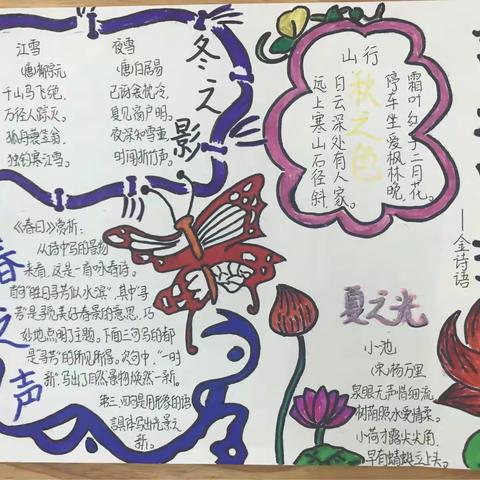 冬之影
江雪
(唐)柳宗元
千山鸟飞绝,
万径人踪灭。
孤舟蓑笠翁,
独钓寒江雪。
夜雪
(唐)白居易
已讶衾枕冷,
复见窗户明。
夜深知雪重,
时闻折竹声。
秋之色
山行
远上寒山石径斜,
白云深处有人家。
停车坐爱枫林晚,
霜叶红于二月花。
——金诗语
春之声
《春日》赏析:
从诗中写的景物
来看,这是一首咏春诗。
首句"胜日寻芳泗水滨",其中"寻
芳"是寻美好春景的意思,巧
妙地点明了主题。下面三句写的都
是"寻芳"的所见所得。次句中,"一时
新"写出了自然景物焕然一新。
第三、四句是用形象的语
言具体写出光景之
新。
夏之光
小池
(宋)杨万里
泉眼无声惜细流,
树荫照水爱晴柔。
小荷才露尖尖角,
早有蜻蜓立上头。